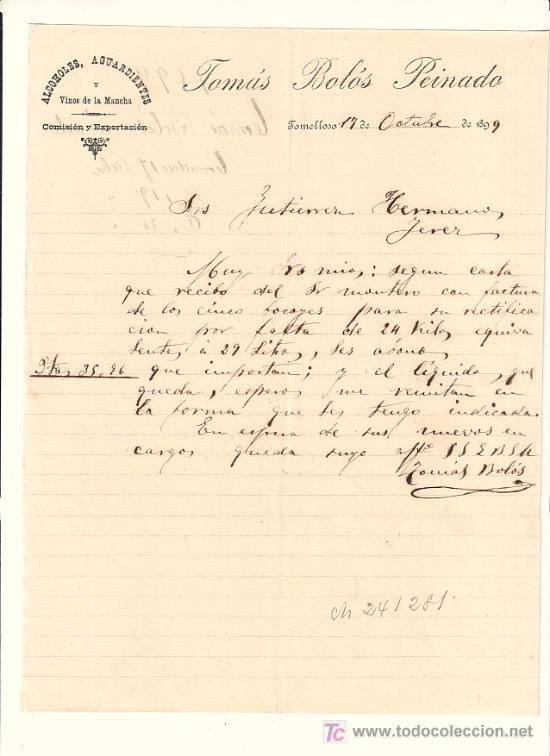 ALCOHOLES, AGUARDIENTES
Y
Vinos de la Mancha
Comisión y Exportación
Tomás Bolós Peinado
Tomelloso 17 de Octubre de 1899
Srs Gutierrez Hermanos
Jerez
Muy Sres mios: segun carta
que recibo del Sr montero con factura
de los cinco bocoyes para su rectifica
cion por falta de 24 Kilos equiva
lente, á 29 Litros, les abono
Ptas 35,96 que importan; y el líquido, que
queda, espero me remitan en
la forma que les tengo indicada.
En espera de sus nuevos en
cargos queda suyo affmo S S Q B S M
Tomás Bolós
241281
TC www.todocoleccion.net